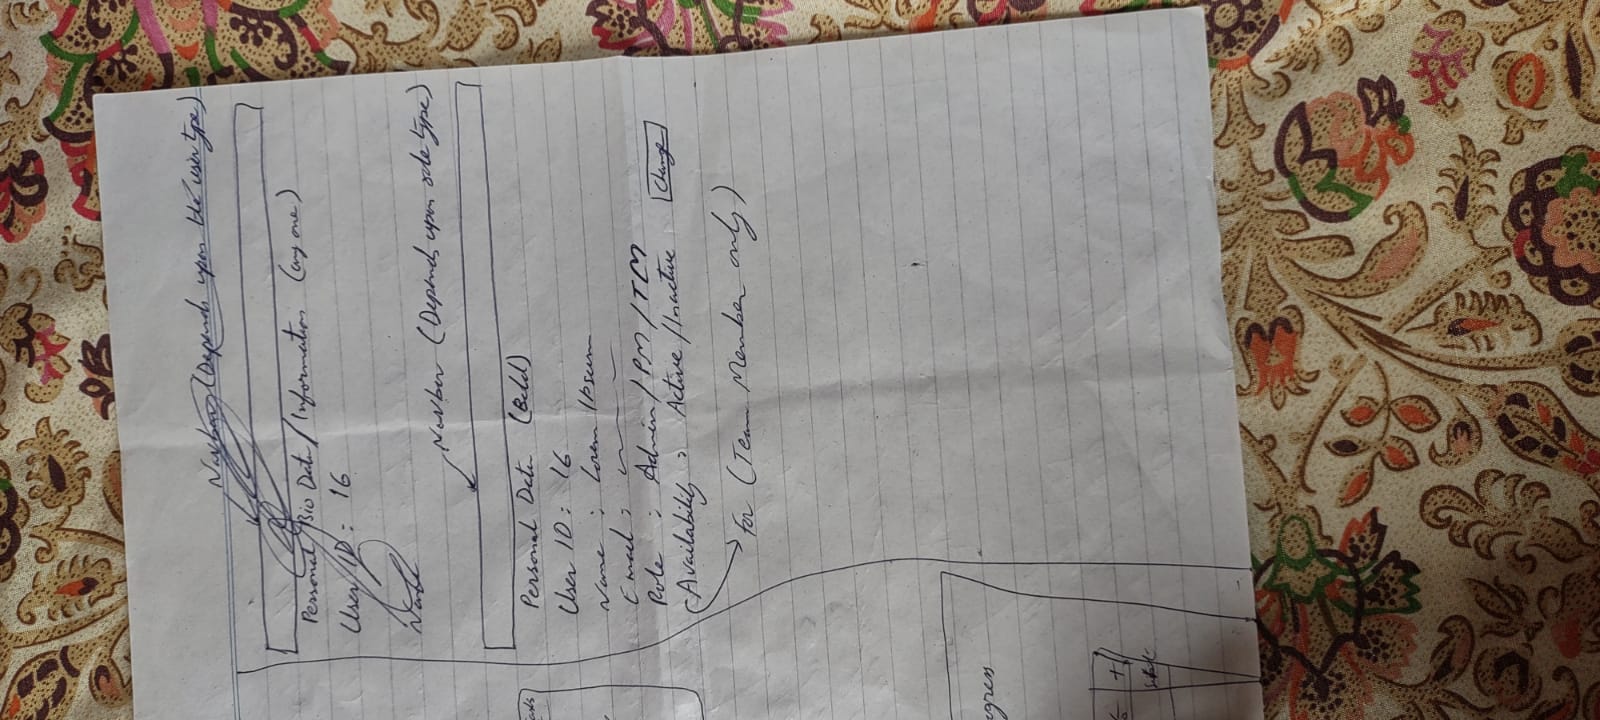 Navbar (Depends upon the user type)
Personal Bio Data/Information (any one)
User ID: 16
Navbar (Depends upon role type)
Personal Data (Bold)
User ID: 16
Name: Lorem Ipsum
Email:
Role: Admin/PM/TM
Availability: Active/Inactive Change
For (Team Member only)